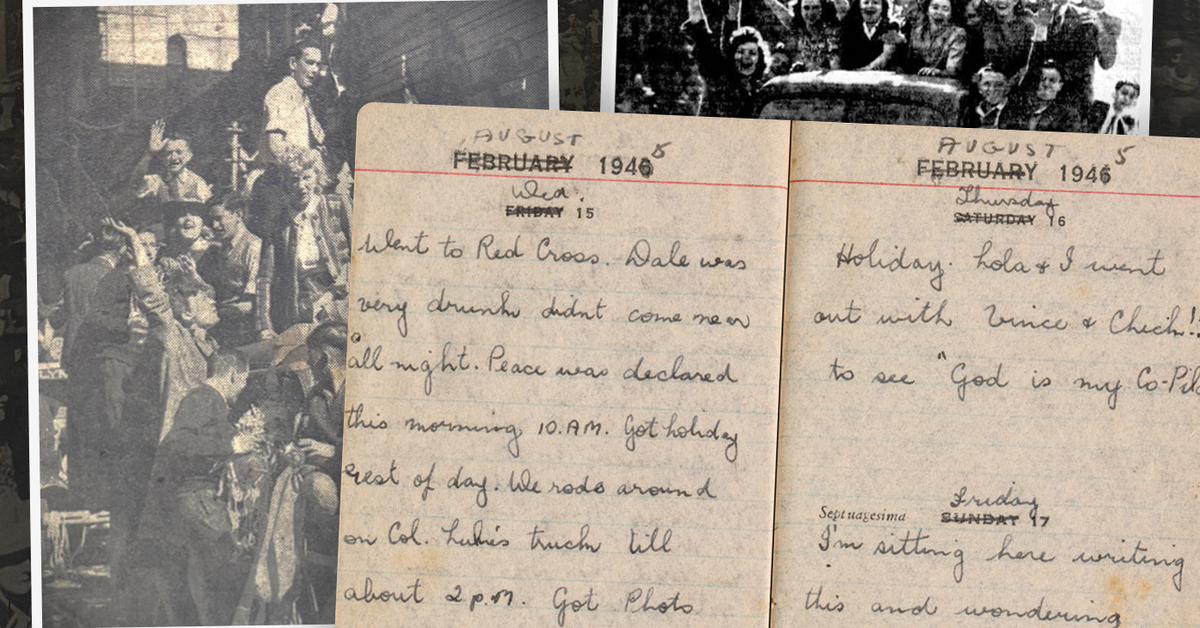 AUGUST
FEBRUARY 1946 5
Wed.
FRIDAY 15
Went to Red Cross. Dale was
very drunk didnt come near
all night. Peace was declared
this morning 10.A.M. Got holiday
rest of day. We rode around
on Col. truck till
about 2 p.m. Got Photo
AUGUST
FEBRUARY 1946 5
Thursday
SATURDAY 16
Holiday. Lola & I went
out with Vince & Chick!!
to see "God is my Co-Pil
Friday
Septuagesima SUNDAY 17
I'm sitting here writing
this and wondering